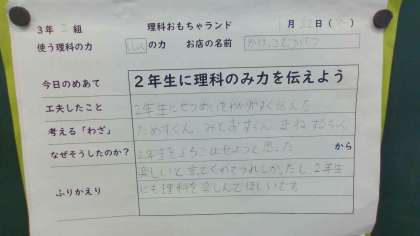 ３年 二 組 理科おもちゃランド 月 日（ ）
使う理科の力 の力 お店の名前
今日のめあて ２年生に理科のみ力を伝えよう
工夫したこと ２年生にせつめいをわかりやすく伝えた
考える「わざ」 ためすくん、みとおすくん、まねするくん
なぜそうしたのか？ ２年生をよろこばせようと思った から
楽しいと言ってくれてうれしかったし、２年生
ふりかえり にも理科を楽しんでほしいです。